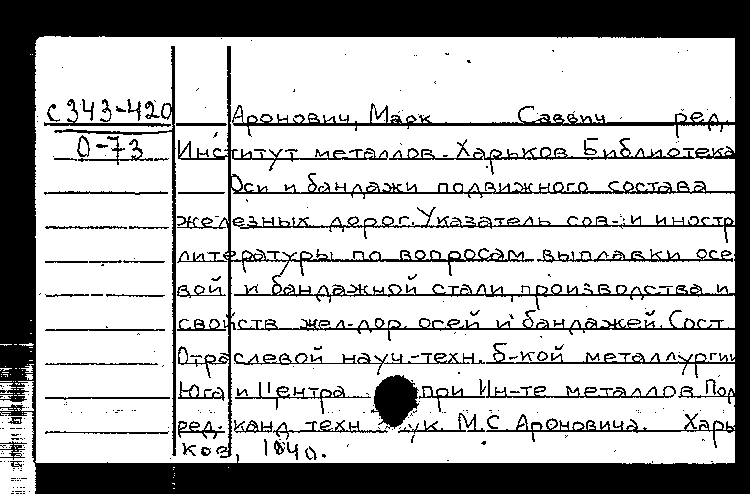 с343-420
О-73
Аронович, Марк Саввич ред.
Институт металлов. Харьков. Библиотека
Оси и бандажи подвижного состава
железных дорог. Указатель сов. и иностр
литературы по вопросам выплавки осе
вой и бандажной стали, производства и
свойств жел-дор. осей и бандажей. Сост
Отраслевой науч.-техн. б-кой металлургии
Юга и Центра при Ин-те металлов. Под
ред. канд техн ук. М.С. Ароновича. Харь
ков, 1940.